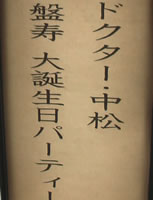 ドクター・中松
盤寿 大誕生日パーティー